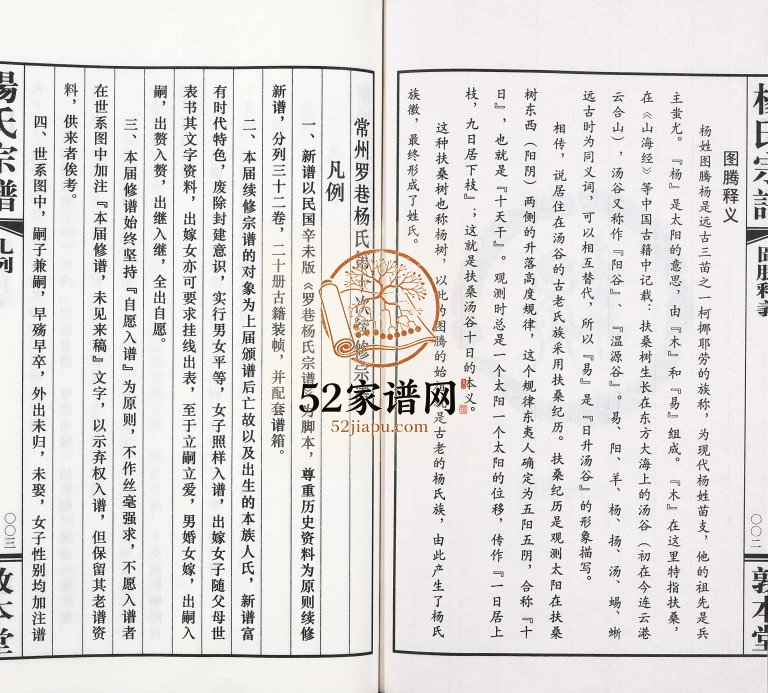 杨氏宗谱
图腾释义
〇〇二
敦本堂
图腾释义
杨姓图腾杨是远古三苗之一柯挪耶劳的族称，为现代杨姓苗支，他的祖先是兵
主蚩尤。『杨』是太阳的意思，由『木』和『易』组成。『木』在这里特指扶桑，
在《山海经》等中国古籍中记载：扶桑树生长在东方大海上的汤谷（初在今连云港
云台山），汤谷又称作『阳谷』、『温源谷』。易、阳、羊、杨、扬、汤、蝪、蜥
远古时为同义词，可以相互替代，所以『易』是『日升汤谷』的形象描写。
相传，说居住在汤谷的古老氏族采用扶桑纪历。扶桑纪历是观测太阳在扶桑
树东西（阳阴）两侧的升落高度规律，这个规律东夷人确定为五阳五阴，合称『十
日』，也就是『十天干』。观测时总是一个太阳一个太阳的位移，传作『一日居上
枝，九日居下枝』；这就是扶桑汤谷十日的本义。
这种扶桑树也称杨树，以此的图腾的始祖就是古老的杨氏族，由此产生了杨氏
族徽，最终形成了姓氏。
常州罗巷杨氏第 次续修宗
凡例
一、新谱以民国辛未版《罗巷杨氏宗谱》为脚本，尊重历史资料为原则续修
新谱，分列三十二卷，二十册古籍装帧，并配套谱箱。
二、本届续修宗谱的对象为上届颁谱后亡故以及出生的本族人氏，新谱富
有时代特色，废除封建意识，实行男女平等，女子照样入谱，出嫁女子随父母世
表书其文字资料，出嫁女亦可要求挂线出表，至于立嗣立爱，男婚女嫁，出嗣入
嗣，出赘入赘，出继入继，全出自愿。
三、本届修谱始终坚持『自愿入谱』为原则，不作丝毫强求，不愿入谱者
在世系图中加注『本届修谱，未见来稿』文字，以示弃权入谱，但保留其老谱资
料，供来者俟考。
四、世系图中，嗣子兼嗣，早殇早卒，外出未归，未娶，女子性别均加注谱
杨氏宗谱
凡例
〇〇三
敦本堂
52家谱网
52jiapu.com